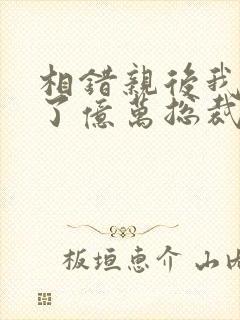 相錯親後我
了億萬総裁
板垣恵介 山内